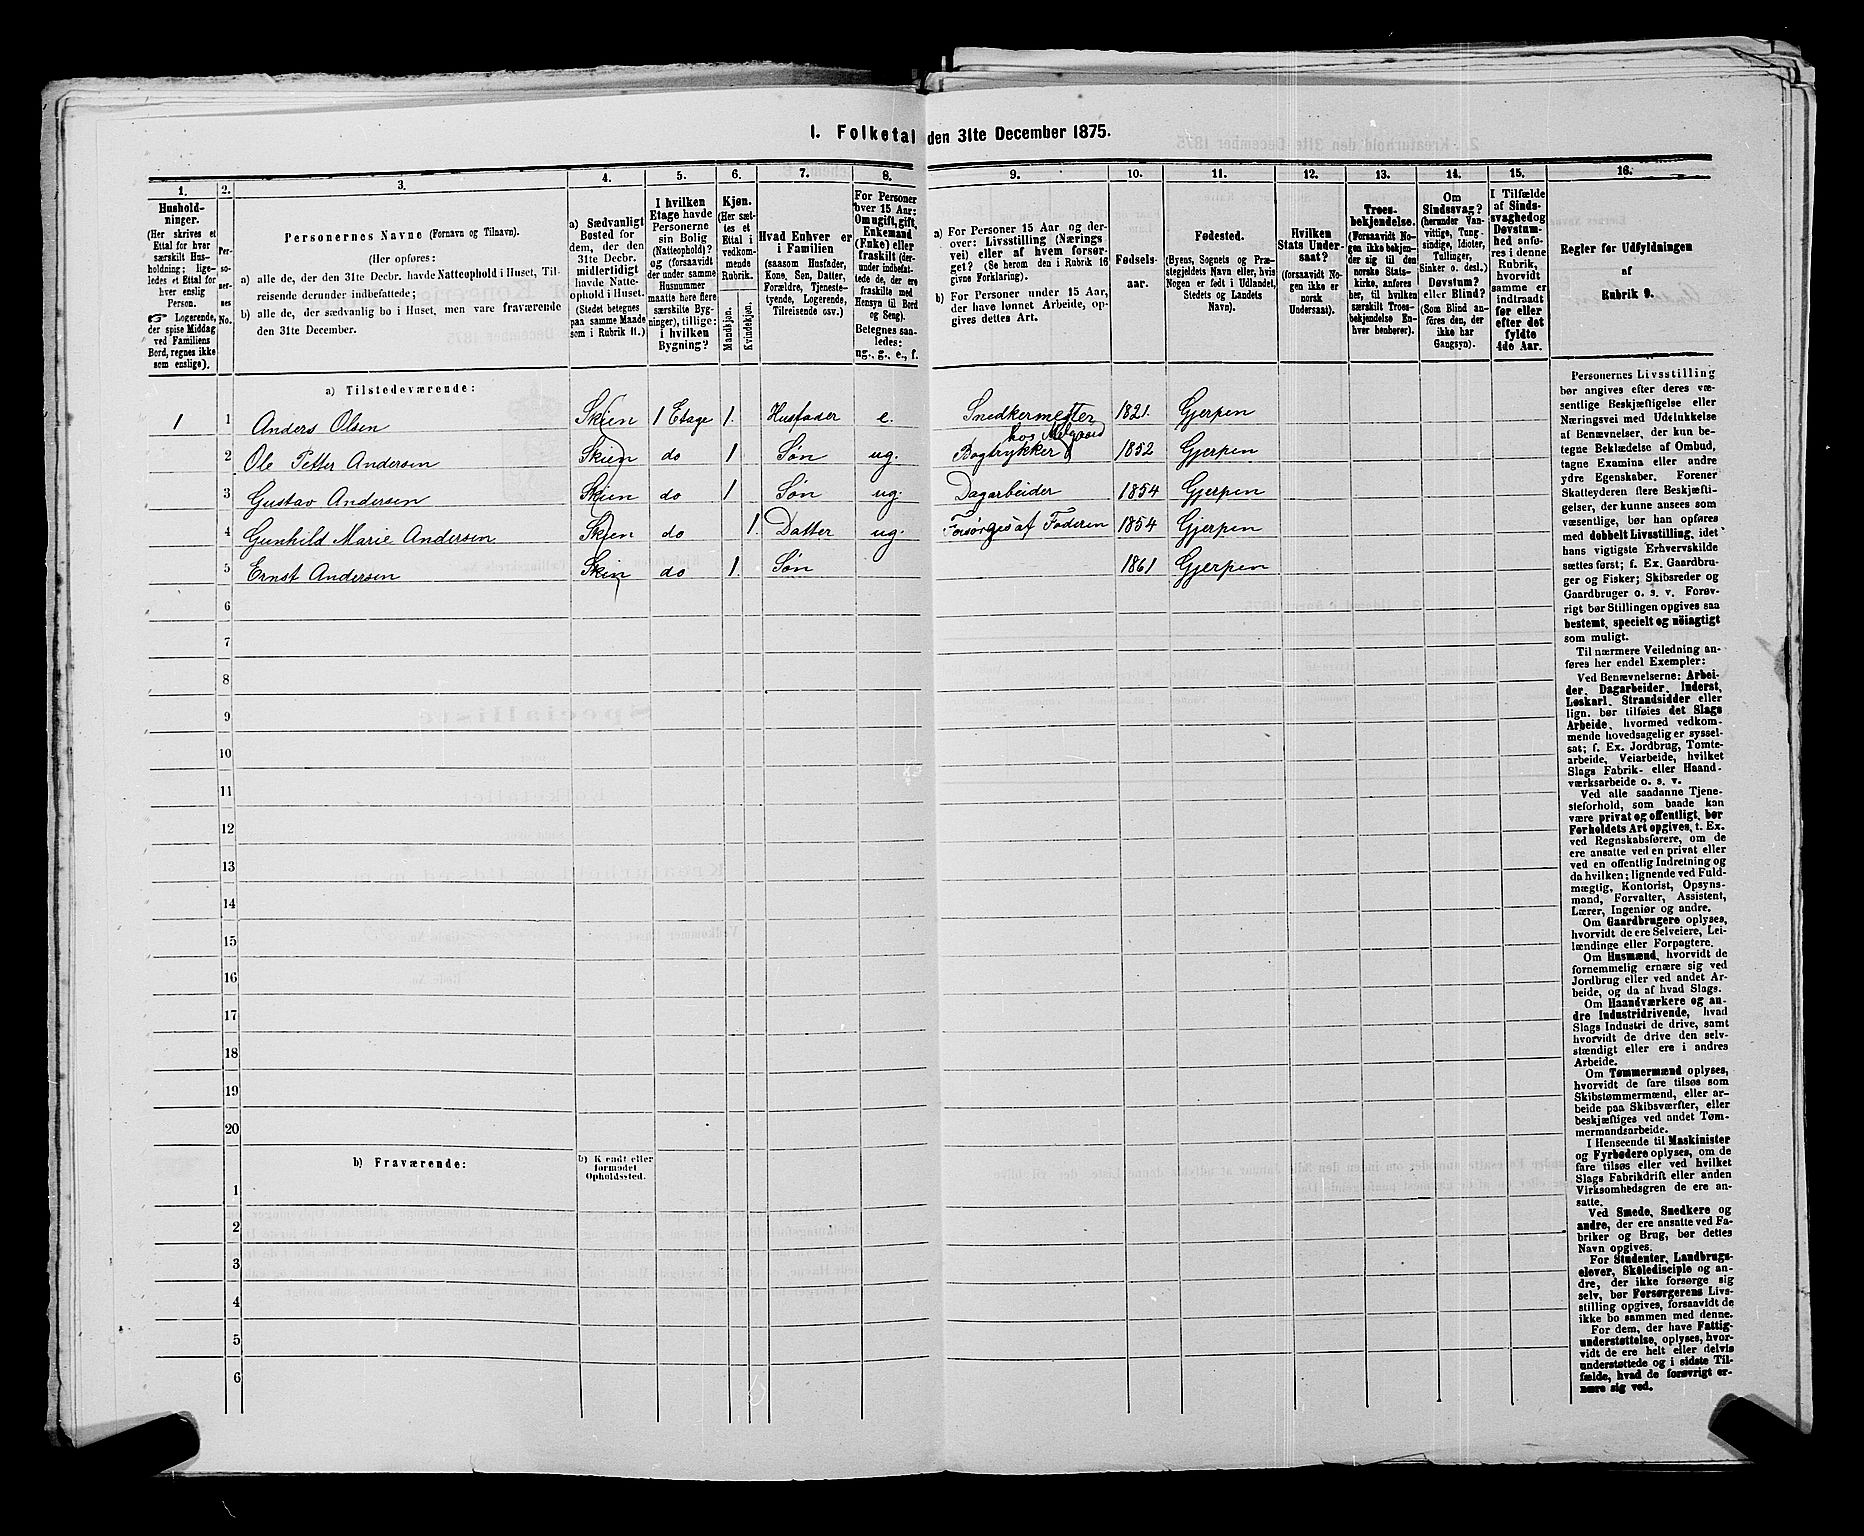 1. Folketal den 31te December 1875.
1. 2. 3. 4. 5. 6. 7. 8. 9. 10. 11. 12. 13. 14. 15. 16.
Hushold-
ninger.
(Her skrives et
Ettal for hver
særskilt Hus-
holdning; lige-
ledes et Ettal for
hver enslig
Person.
☞ Logerende,
der spise Middag
ved Familiens
Bord, regnes ikke
som enslige).
Per-
so-
ner-
nes
No.
Personernes Navne (Fornavn og Tilnavn).
(Her opføres:
a) alle de, der den 31te Decbr. havde Natteophold i Huset, Til-
reisende derunder indbefattede;
b) alle de, der sædvanlig bo i Huset, men vare fraværende
den 31te December.
a) Sædvanligt
Bosted for
dem, der den
31te Decbr.
midlertidigt
havde Natte-
ophold i Huset.
(Stedet betegnes
paa samme Maade
som i Rubrik 11.)
I hvilken
Etage havde
Personerne
sin Bolig
(Natteophold)?
og (forsaavidt
der under samme
Husnummer
maatte høre flere
særskilte Byg-
ninger), tillige:
i hvilken
Bygning?
Kjøn.
(Her sæt-
tes et
Ettal i
vedkom-
mende
Rubrik.
Mandkjøn.
Kvindekjøn.
Hvad Enhver er
i Familien
(saasom Husfader,
Kone, Søn, Datter,
Forældre, Tjeneste-
tyende, Logerende,
Tilreisende osv.)
For Personer
over 15 Aar:
Om ugift, gift,
Enkemand
(Enke) eller
fraskilt (der-
under indbefat-
tede de, der ere
fraskilte med
Hensyn til Bord
og Seng).
Betegnes saa-
ledes:
ug., g., e., f.
a) For Personer 15 Aar og der-
over: Livsstilling (Nærings
vei) eller af hvem forsør-
get? (Se herom den i Rubrik 16
givne Forklaring).
b) For Personer under 15 Aar,
der have lønnet Arbeide, op-
gives dettes Art.
Fødsels-
aar.
Fødested.
(Byens, Sognets og Præ-
stegjeldets Navn eller, hvis
Nogen er født i Udlandet,
Stedets og Landets
Navn).
Hvilken
Stats Under-
saat?
(forsaavidt No-
gen ikke er
norsk
Undersaat).
Troes-
bekjendelse.
(Forsaavidt No-
gen ikke bekjen-
der sig til den
norske Stats-
kirke, anføres
her, til hvilken
særskilt Troes-
bekjendelse En-
hver henhører).
Om
Sindssvag?
(herunder Van-
vittige, Tung-
sindige, Idioter,
Tullinger,
Sinker o. desl.)
Døvstum?
eller Blind?
(Som Blind an-
føres den, der
ikke har
Gangsyn).
I Tilfælde
af Sinds-
svaghed og
Døvstum-
hed anfø-
res i denne
Rubrik,
hvorvidt
samme er
indtraadt
før eller
efter det
fyldte
4de Aar.
Regler for Udfyldningen
af
Rubrik 9.
a) Tilstedeværende:
1 1 Anders Olsen Skien 1 Etage 1. Husfader e. Snedkermester 1821. Gjerpen
hos Melgaard
2 Ole Petter Andersen Skien do 1 Søn ug. Bogtrykker 1852 Gjerpen
3 Gustav Andersen Skien do 1 Søn ug. Dagarbeider 1854 Gjerpen
4 Gunhild Marie Andersen Skien do 1. Datter ug. Forsørges af Faderen 1854 Gjerpen
5 Ernst Andersen Skien do 1. Søn 1861 Gjerpen
6
7
8
9
10
11
12
13
14
15
16
17
18
19
20
b) Fraværende:
b) Kjendt eller
formodet
Opholdssted.
1
2
3
4
5
6
Personernes Livsstilling
bør angives efter deres væ-
sentlige Beskjæftigelse eller
Næringsvei med Udelukkelse
af Benævnelser, der kun be-
tegne Beklædelse af Ombud,
tagne Examina eller andre
ydre Egenskaber. Forener
Skatteyderen flere Beskjæfti-
gelser, der kunne ansees som
væsentlige, bør han opføres
med dobbelt Livsstilling, idet
hans vigtigste Erhvervskilde
sættes først; f. Ex. Gaardbru-
ger og Fisker; Skibsreder og
Gaardbruger o. s. v. Forøv-
rigt bør Stillingen opgives saa
bestemt, specielt og nöiagtigt
som muligt.
Til nærmere Veiledning an-
føres her endel Exempler:
Ved Benævnelserne: Arbei-
der, Dagarbeider, Inderst,
Løskarl, Strandsidder eller
lign. bør tilføies det Slags
Arbeide, hvormed vedkom-
mende hovedsagelig er syssel-
sat; f. Ex. Jordbrug, Tomte-
arbeide, Veiarbeide, hvilket
Slags Fabrik- eller Haand-
værksarbeide o. s. v.
Ved alle saadanne Tjene-
steforhold, som baade kan
være privat og offentligt, bør
Forholdets Art opgives, t. Ex.
ved Regnskabsførere, om de
ere ansatte ved en privat eller
ved en offentlig Indretning og
da hvilken; lignende ved Fuld-
mægtig, Kontorist, Opsyns-
mand, Forvalter, Assistent,
Lærer, Ingeniør og andre.
Om Gaardbrugere oplyses,
hvorvidt de ere Selveiere, Lei-
lændinge eller Forpagtere.
Om Husmænd, hvorvidt de
fornemmelig ernære sig ved
Jordbrug eller ved andet Ar-
beide, og da af hvad Slags.
Om Haandværkere og an-
dre Industridrivende, hvad
Slags Industri de drive, samt
hvorvidt de drive den selv-
stændigt eller ere i andres
Arbeide.
Om Tømmermænd oplyses,
hvorvidt de fare tilsøs som
Skibstømmermænd, eller ar-
beide paa Skibsværfter, eller
beskjæftiges ved andet Tøm-
mermandsarbeide.
I Henseende til Maskinister
og Fyrbødere oplyses, om de
fare tilsøs eller ved hvilket
Slags Fabrikdrift eller anden
Virksomhedsgren de ere an-
satte.
Ved Smede, Snedkere og
andre, der ere ansatte ved Fa-
briker og Brug, bør dettes
Navn opgives.
For Studenter, Landbrugs-
elever, Skoledisciple og an-
dre, der ikke forsørge sig
selv, bør Forsørgerens Livs-
stilling opgives, forsaavidt de
ikke bo sammen med denne.
For dem, der have Fattig-
understøttelse, oplyses, hvor-
vidt de ere helt eller delvis
understøttede og i sidste Til-
fælde, hvad de forøvrigt er-
nære sig ved.